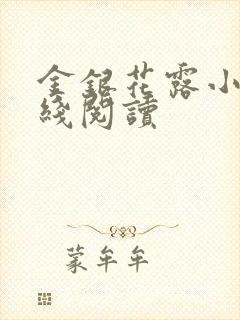 金銀花露小
綫閱讀
蒙牟牟